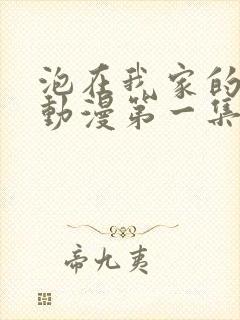 泡在我家的
動漫第一集
帝九夷